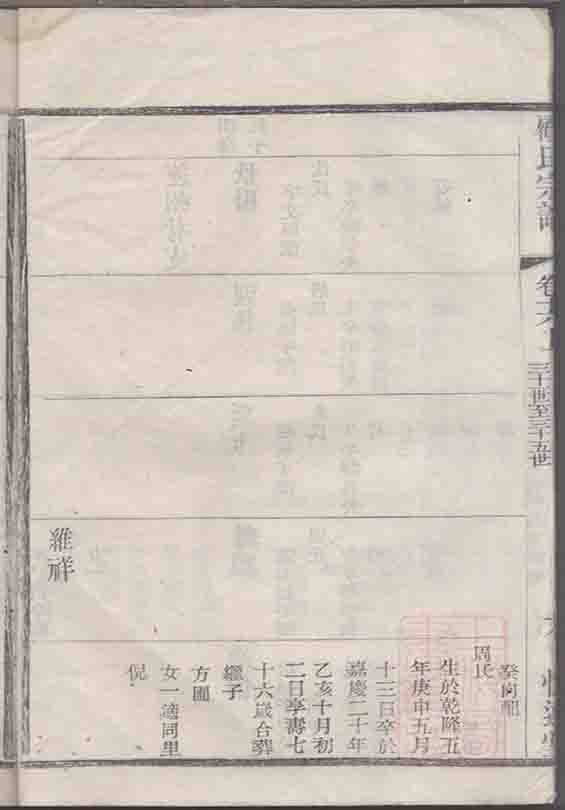 氏宗譜
三十一世至三十五世
癸向配
周氏
生於乾隆五
年庚申五月
十三日卒於
嘉慶二十年
乙亥十月初
二日卒壽七
十六歲合葬
繼子
女一適同里
倪
維祥